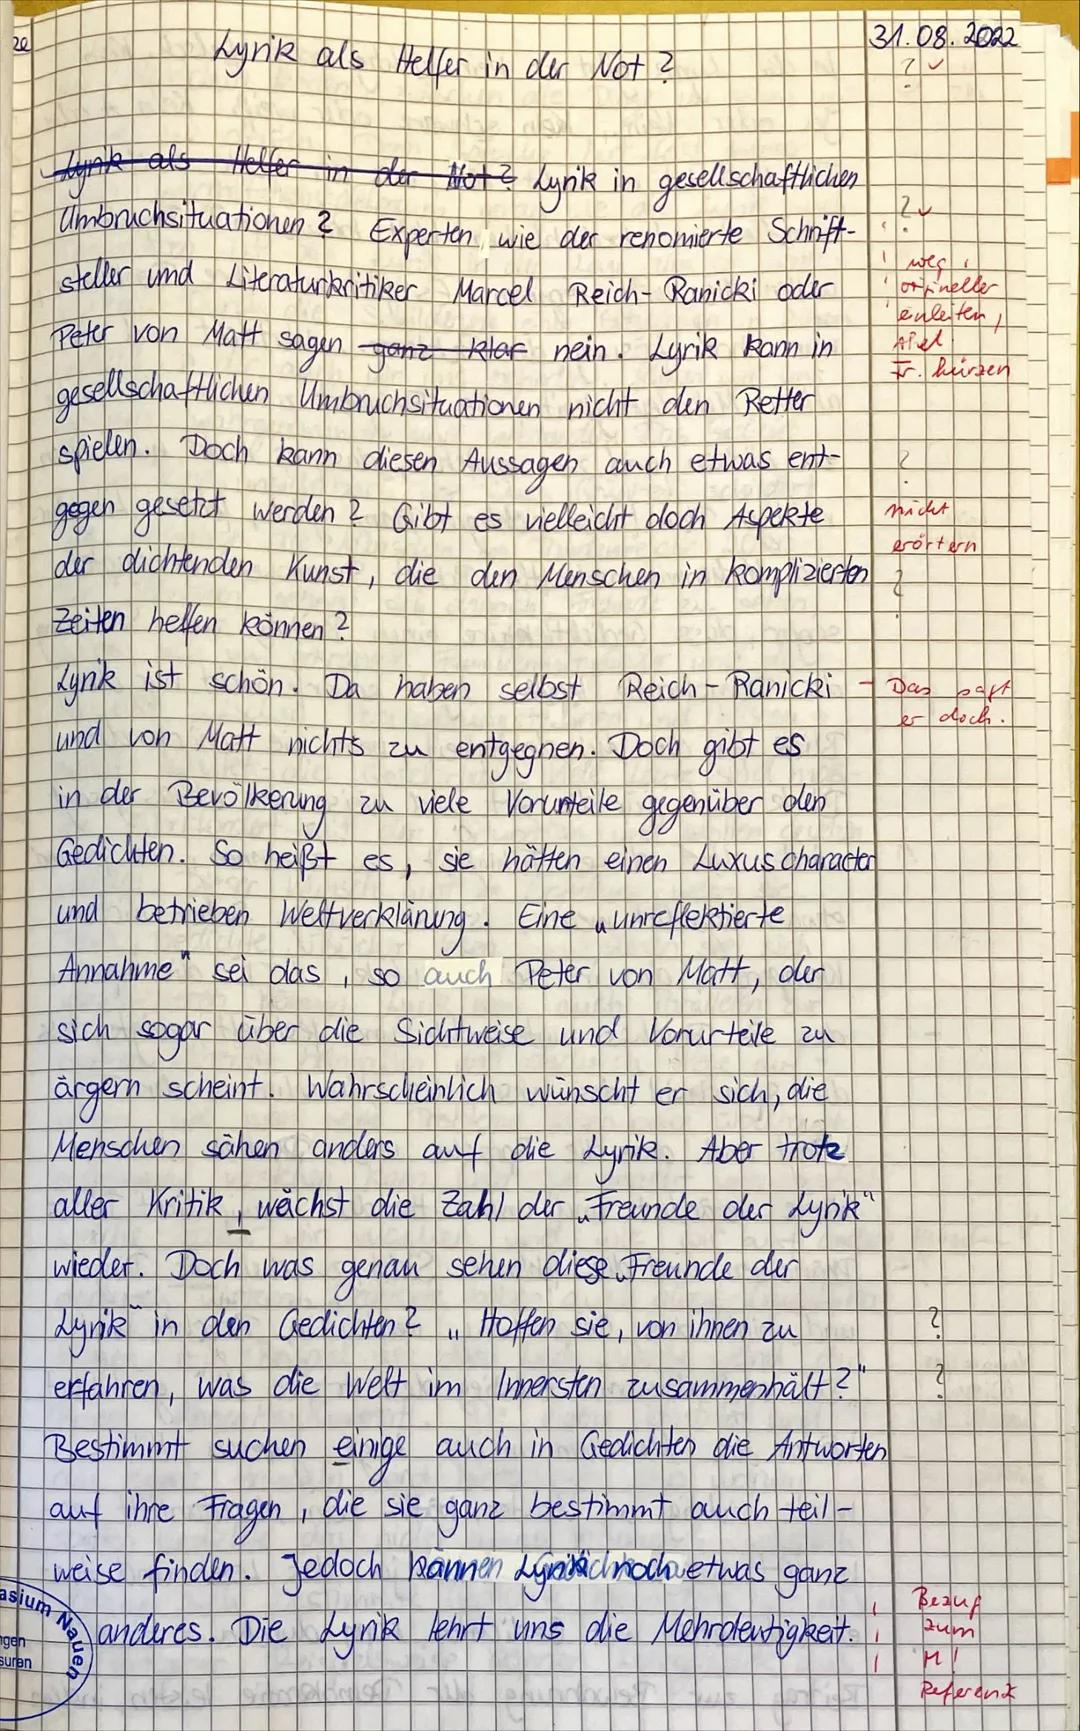 20
31.08.2022
Lyrik als Helfer in der Not?
? ✓
Lyrik als Helfer in der Not? Lyrik in gesellschaftlichen
Umbruchsituationen? Experten, wie der renomierte Schrift-
steller und Literaturkritiker Marcel Reich-Ranicki oder
Peter von Matt sagen ganz klar nein. Lyrik kann in
gesellschaftlichen Umbruchsituationen nicht den Retter
spielen. Doch kann diesen Aussagen auch etwas ent-
gegen gesetzt werden? Gibt es vielleicht doch Aspekte
der dichtenden Kunst, die den Menschen in komplizierten
Zeiten helfen können?
Lyrik ist schön. Da haben selbst Reich-Ranicki
und von Matt nichts zu entgegnen. Doch gibt es
in der Bevölkerung zu viele Vorurteile gegenüber den
Gedichten. So heißt es, sie hätten einen Luxuscharacter
und betrieben Weltverklärung. Eine „unreflektierte
Annahme" sei das, so auch Peter von Matt, der
sich sogar über die Sichtweise und Vorurteile zu
ärgern scheint. Wahrscheinlich wünscht er sich, die
Menschen sähen anders auf die Lyrik. Aber trotz
aller Kritik, wächst die Zahl der „Freunde der Lyrik"
wieder. Doch was genau sehen diese „Freunde der
Lyrik" in den Gedichten? „Hoffen sie, von ihnen zu
erfahren, was die Welt im Innersten zusammenhält?"
Bestimmt suchen einige auch in Gedichten die Antworten
auf ihre Fragen, die sie ganz bestimmt auch teil-
weise finden. Jedoch können noch etwas ganz
anderes. Die Lyrik lehrt uns die Mehrdeutigkeit.
? ✓
weg
origineller
enleiten,
Fr. kürzen
?
nicht
erörtern
?
- Das sagt
er doch.
?
?
Bezug
zum
M!
Referenz
asium Nauen
ngen
suren